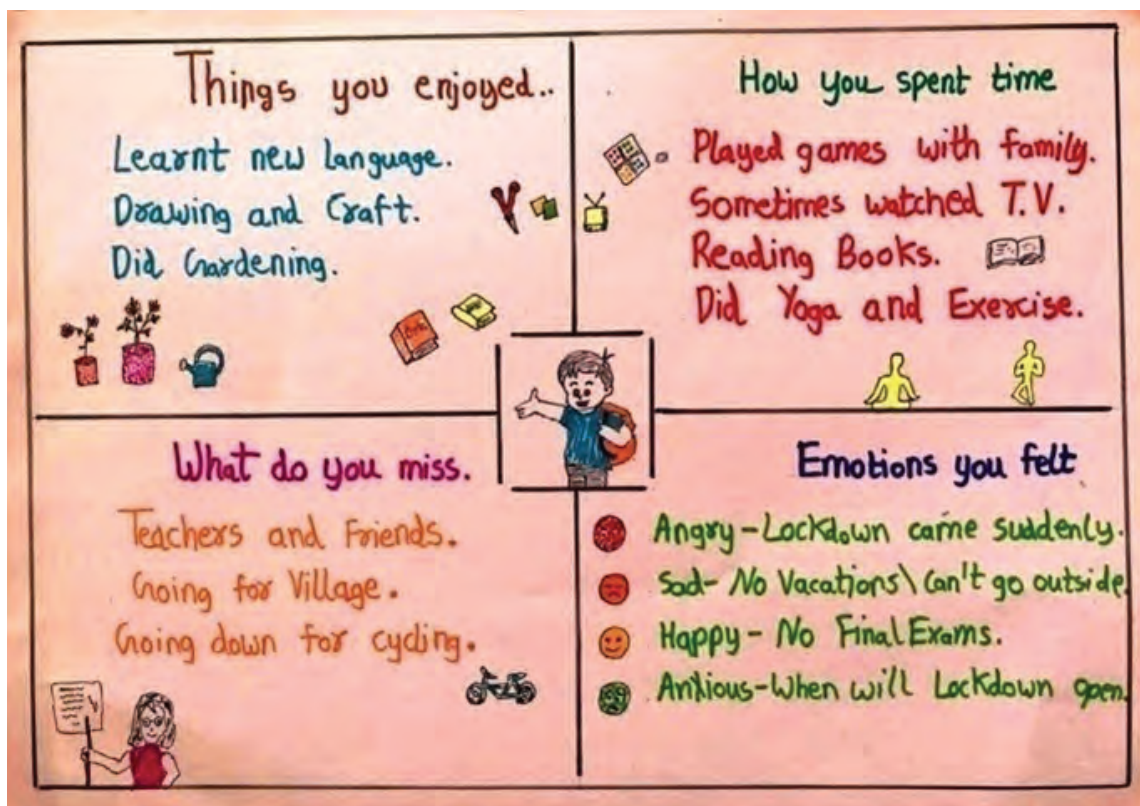 Things you enjoyed..
Learnt new language.
Drawing and Craft.
Did Gardening.
How you spent time
Played games with family.
Sometimes watched T.V.
Reading Books.
Did Yoga and Exercise.
What do you miss.
Teachers and Friends.
Going for Village.
Going down for cycling.
Emotions you felt
Angry - Lockdown came suddenly.
Sad - No Vacations \ Can't go outside.
Happy - No Final Exams.
Anxious - When will Lockdown open.